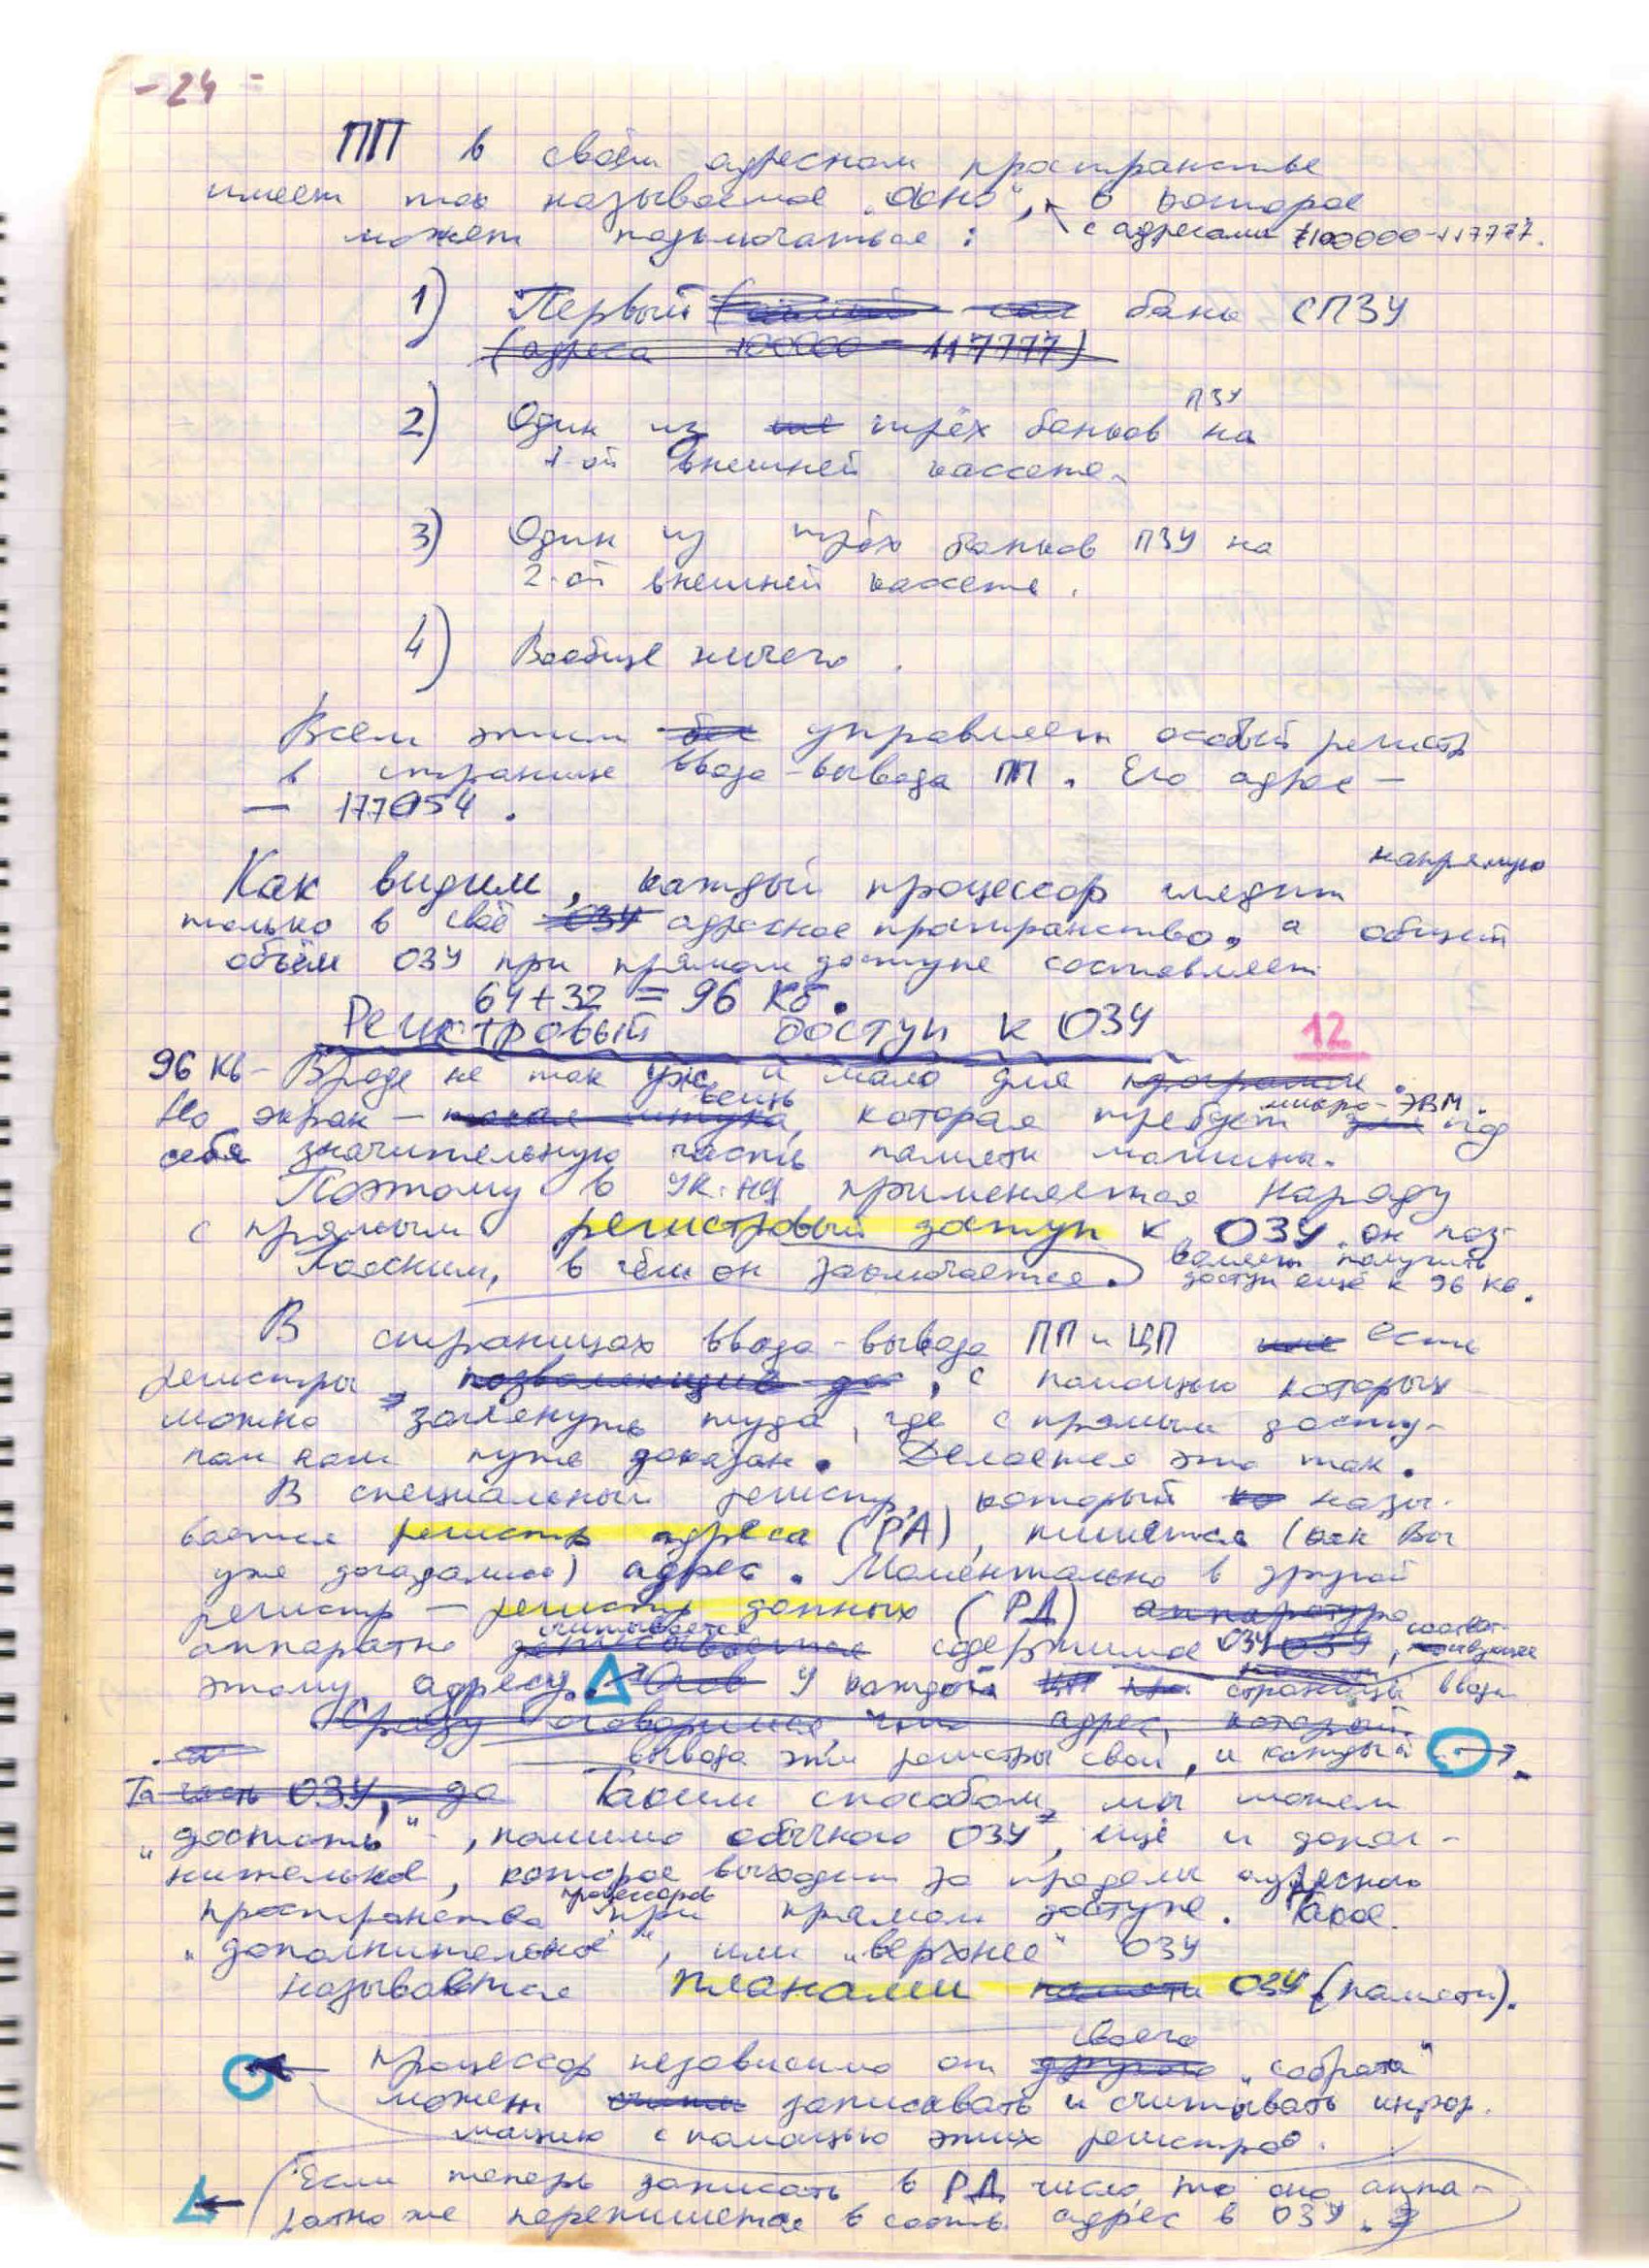 - 24 =
ПП в своём адресном пространстве
имеет так называемое „окно“, в которое
может подключаться: с адресами 100000-117777.
1) Первый банк СПЗУ
(адреса 100000 - 117777)
2) Один из трёх банков ПЗУ на
1-ой внешней кассете.
3) Один из трёх банков ПЗУ на
2-ой внешней кассете.
4) Вообще ничего.
Всем этим управляет особый регистр
в странице ввода-вывода ПП. Его адрес —
— 177054.
Как видим, каждый процессор глядит напрямую
только в своё ОЗУ адресное пространство, а общий
объём ОЗУ при прямом доступе составляет
64+32 = 96 Кб.
Регистровый доступ к ОЗУ 12
96 Кб - Вроде не так уж и мало для микро-ЭВМ.
Но экран — вещь, которая требует под
себя значительную часть памяти машины.
Поэтому в УК-НЦ применяется наряду
с прямым регистровый доступ к ОЗУ. он поз-
воляет получить
доступ ещё к 96 Кб.
Поясним, в чём он заключается.
В страницах ввода-вывода ПП и ЦП есть
регистры, позволяющие, с помощью которых
можно заглянуть туда, где с прямым досту-
пом нам путь заказан. Делается это так.
В специальный регистр, который назы-
вается регистр адреса (РА), пишется (как Вы
уже догадались) адрес. Моментально в другой
регистр — регистр данных (РД) аппаратура
аппаратно считывается содержимое ОЗУ, соответ-
ствующее
этому адресу. У каждой страницы ввода
Сразу оговоримся, что адрес, который
вывода эти регистры свои, и каждый
Та часть ОЗУ, до Таким способом, мы можем
„достать“, помимо обычного ОЗУ, ещё и допол-
нительное, которое выходит за пределы адресного
пространства процессоров при прямом доступе. Такое
„дополнительное“, или „верхнее“ ОЗУ
называется планами памяти ОЗУ (памяти).
процессор независимо от своего другого „собрата“
может записывать и считывать инфор-
мацию с помощью этих регистров.
Если теперь записать в РД число, то оно аппа-
ратно же перепишется в соотв. адрес в ОЗУ.